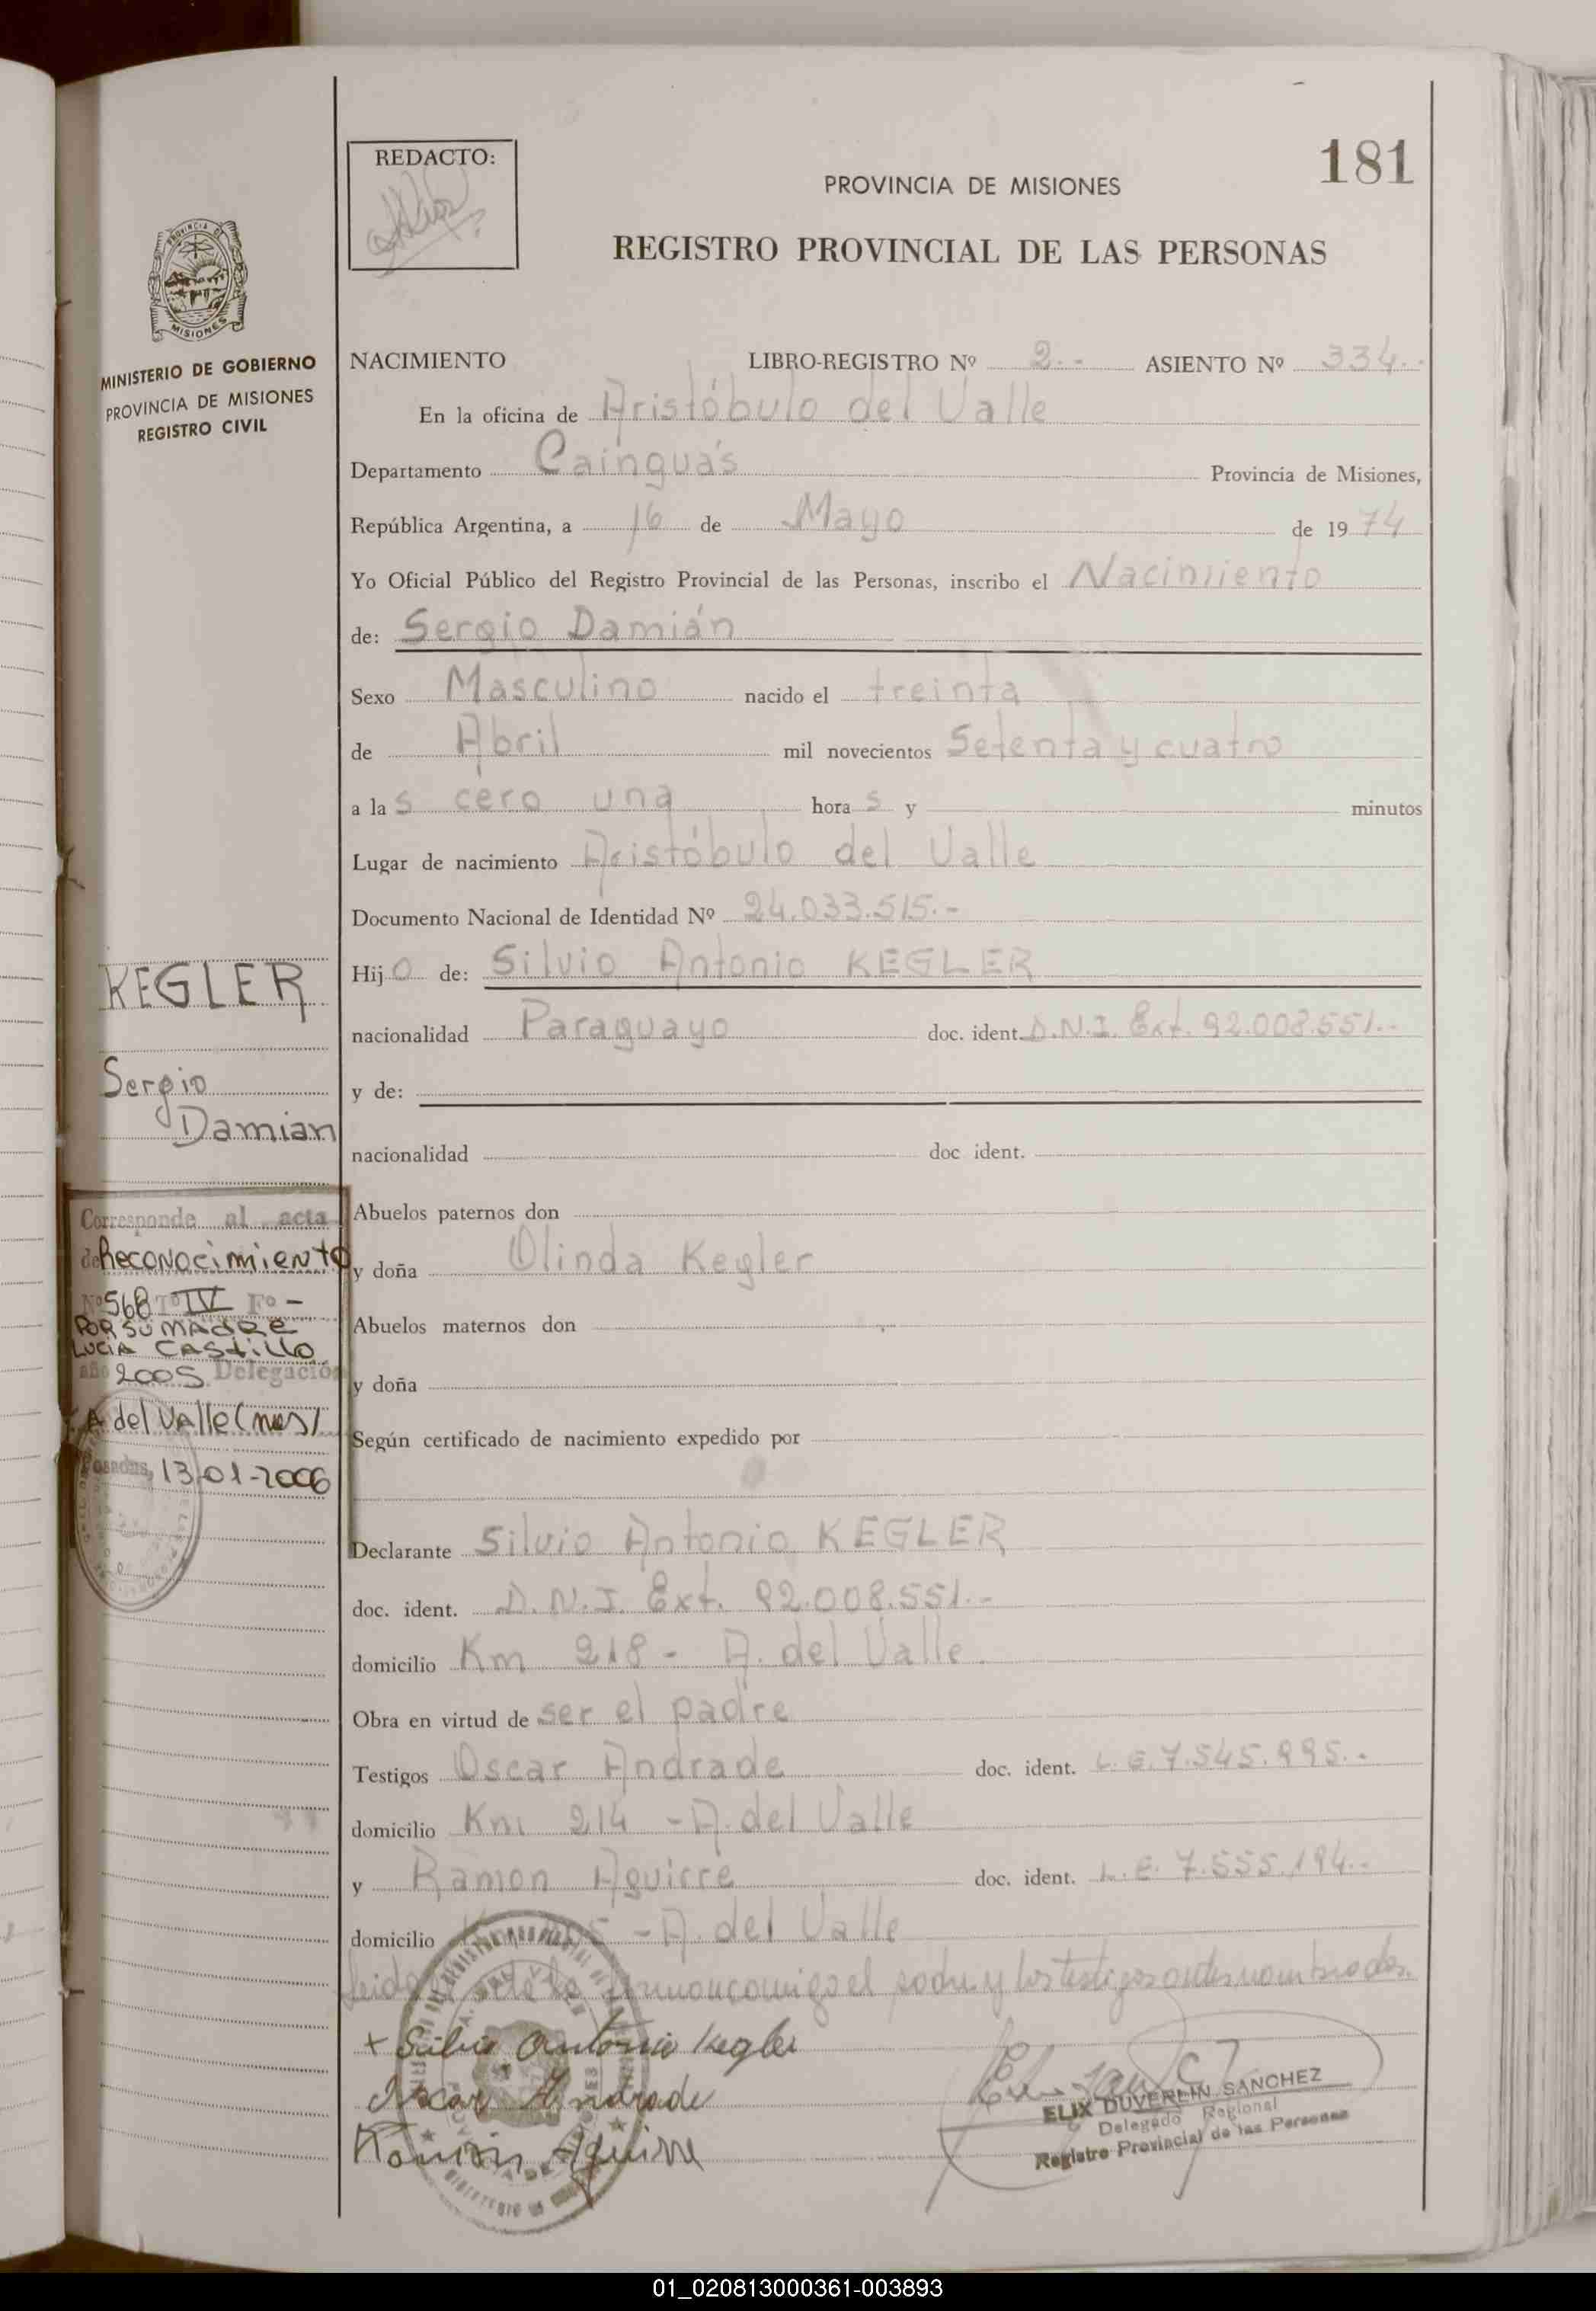 181
REDACTO:
PROVINCIA DE MISIONES
REGISTRO PROVINCIAL DE LAS PERSONAS
PROVINCIA DE
MISIONES
MINISTERIO DE GOBIERNO
PROVINCIA DE MISIONES
REGISTRO CIVIL
NACIMIENTO LIBRO-REGISTRO Nº 2.- ASIENTO Nº 334.-
En la oficina de Aristóbulo del Valle
Departamento Cainguás Provincia de Misiones,
República Argentina, a 16 de Mayo de 1974
Yo Oficial Público del Registro Provincial de las Personas, inscribo el Nacimiento
de: Sergio Damián
Sexo Masculino nacido el treinta
de Abril mil novecientos Setenta y cuatro
a las cero una horas y minutos
Lugar de nacimiento Aristóbulo del Valle
Documento Nacional de Identidad Nº 24.033.515.-
Hijo de: Silvio Antonio KEGLER
nacionalidad Paraguayo doc. ident. D.N.I. Ext. 92.008.551.-
y de:
nacionalidad doc ident.
Abuelos paternos don
y doña Olinda Kegler
Abuelos maternos don
y doña
Según certificado de nacimiento expedido por
Declarante Silvio Antonio KEGLER
doc. ident. D.N.I. Ext. 92.008.551.-
domicilio Km 218 - A. del Valle.
Obra en virtud de ser el padre
Testigos Oscar Andrade doc. ident. L.E. 7.545.995.-
domicilio Km 214 - A. del Valle
y Ramón Aguirre doc. ident. L.E. 7.555.194.-
domicilio - A. del Valle
conmigo el padre y los testigos antes nombrados.
+ Silvio Antonio Kegler
Oscar Andrade
Ramón Aguirre
ELIX DUVERLIN SANCHEZ
Delegado Regional
Registro Provincial de las Personas
KEGLER
Sergio
Damian
Corresponde al acta
de Reconocimiento
Nº 568 Tº IV Fº -
POR SU MADRE
LUCIA CASTILLO
año 2005 Delegación
A del Valle (mes)
Posadas, 13-01-2006
01_020813000361-003893